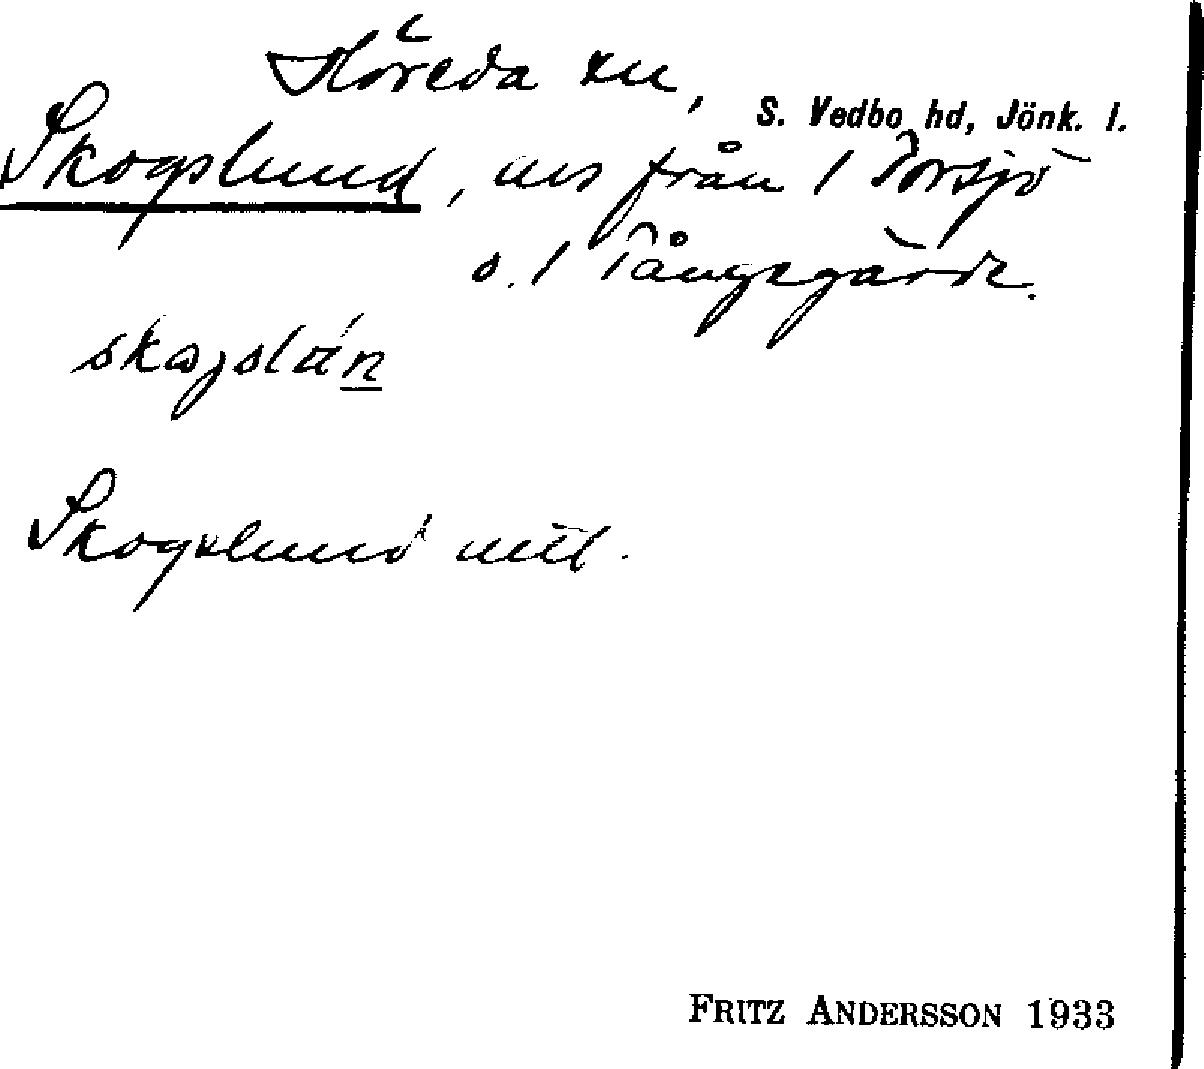 Höreda sn,
S. Vedbo hd, Jönk. l.
Skogslund, avs från 1 Porsjö
o. 1 Tångegärde.
skogslún
Skogslund mtl.
FRITZ ANDERSSON 1933